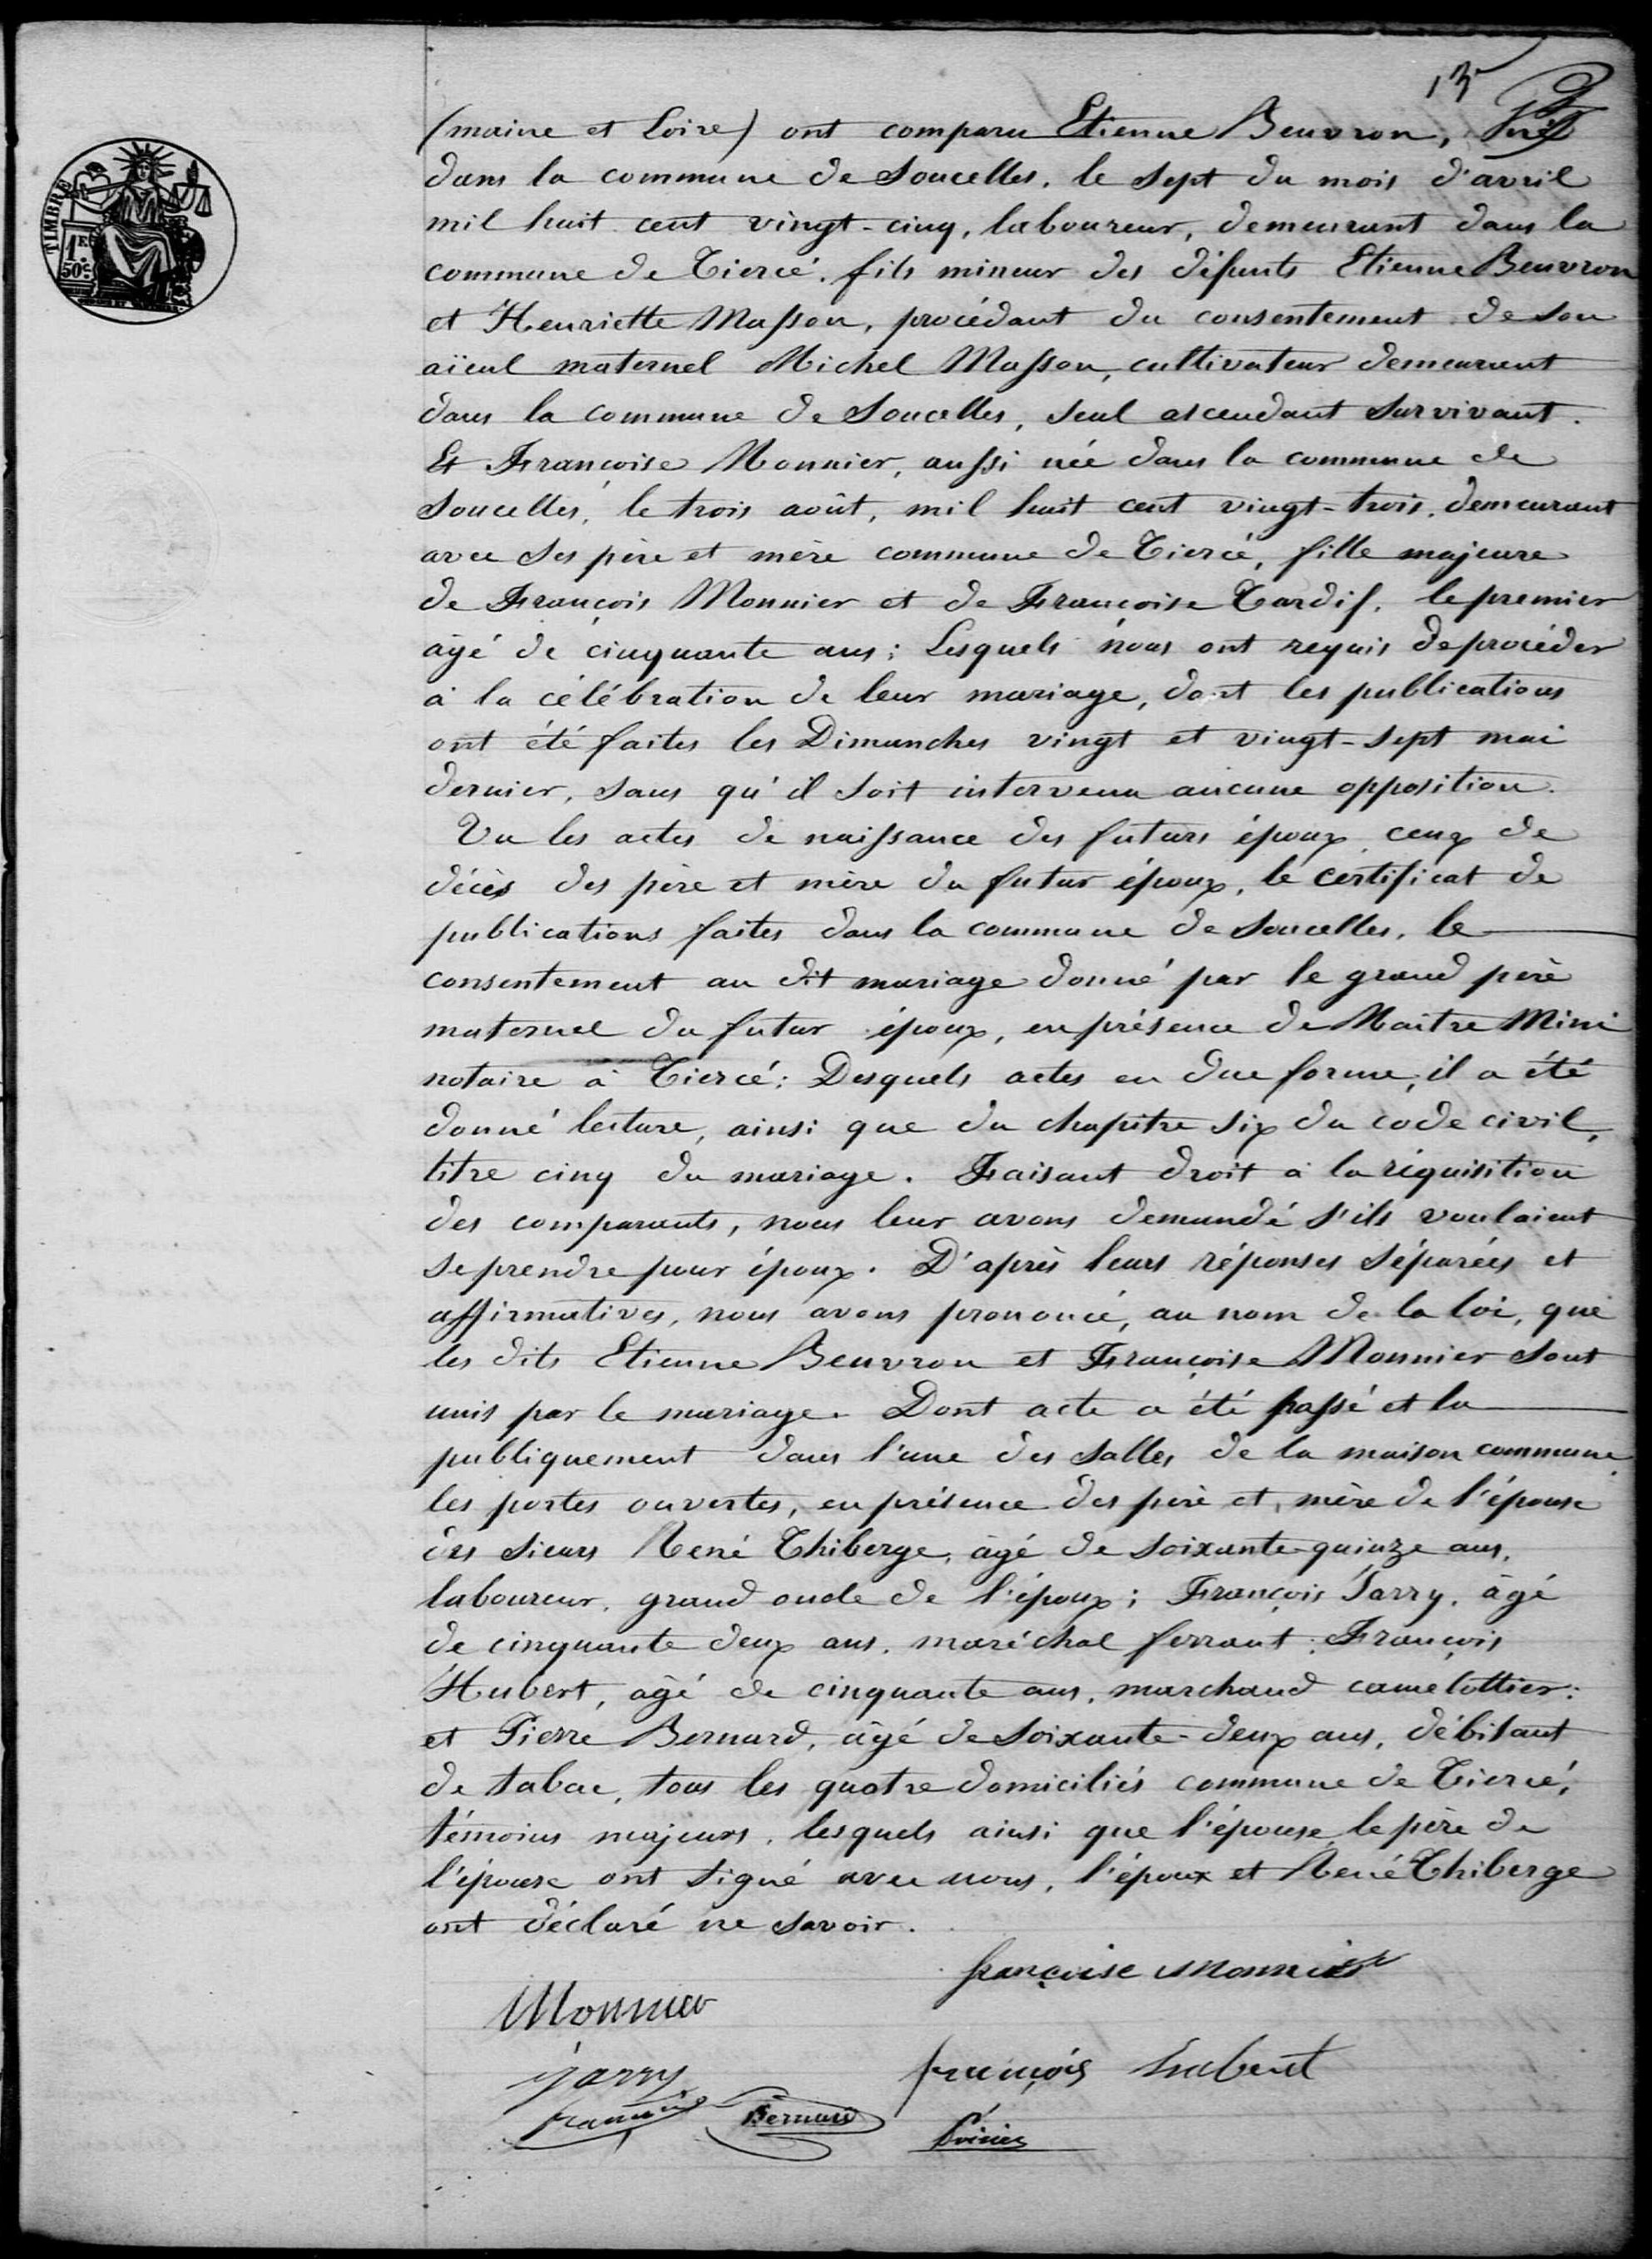 13
(maine et Loire) ont comparu Etienne Beuvron, né
dans la commune de Soucelles, le sept du mois d'avril
mil huit cent vingt-cinq, laboureur, demeurant dans la
commune de Tiercé, fils mineur des défunts Etienne Beuvron
et Henriette Masson, procédant du consentement de son
aïeul maternel Michel Masson, cultivateur demeurant
dans la commune de Soucelles, seul ascendant survivant.
Et Françoise Monnier, aussi née dans la commune de
Soucelles, le trois août, mil huit cent vingt-trois, demeurant
avec ses père et mère commune de Tiercé, fille majeure
de François Monnier et de Françoise Tardif, le premier
âgé de cinquante ans; Lesquels nous ont requis de procéder
à la célébration de leur mariage, dont les publications
ont été faites les Dimanches vingt et vingt-sept mai
dernier, sans qu'il soit intervenu aucune opposition.
Vu les actes de naissance des futurs époux, ceux de
décès des père et mère du futur époux, le certificat de
publications faites dans la commune de Soucelles, le
consentement au dit mariage donné par le grand père
maternel du futur époux, en présence de Maître Miné
notaire à Tiercé; Desquels actes en due forme, il a été
donné lecture, ainsi que du chapitre six du code civil,
titre cinq du mariage. Faisant droit à la réquisition
des comparants, nous leur avons demandé s'ils voulaient
se prendre pour époux. D'après leurs réponses séparées et
affirmatives, nous avons prononcé, au nom de la loi, que
les dits Etienne Beuvron et Françoise Monnier sont
unis par le mariage. Dont acte a été passé et lu
publiquement dans l'une des salles de la maison commune,
les portes ouvertes, en présence des père et mère de l'épouse
des sieurs René Thiberge, âgé de soixante-quinze ans,
laboureur, grand oncle de l'époux; François Jarry, âgé
de cinquante deux ans, maréchal ferrant; François
Hubert, âgé de cinquante ans, marchand camelottier;
et Pierre Bernard, âgé de soixante-deux ans, débitant
de tabac, tous les quatre domiciliés commune de Tiercé,
témoins majeurs, lesquels ainsi que l'épouse, le père de
l'épouse ont signé avec nous, l'époux et René Thiberge
ont déclaré ne savoir.
françoise monnier
Monnier
jarry
françois hubert
françois
Bernard
Poirier
TIMBRE
1F
50c